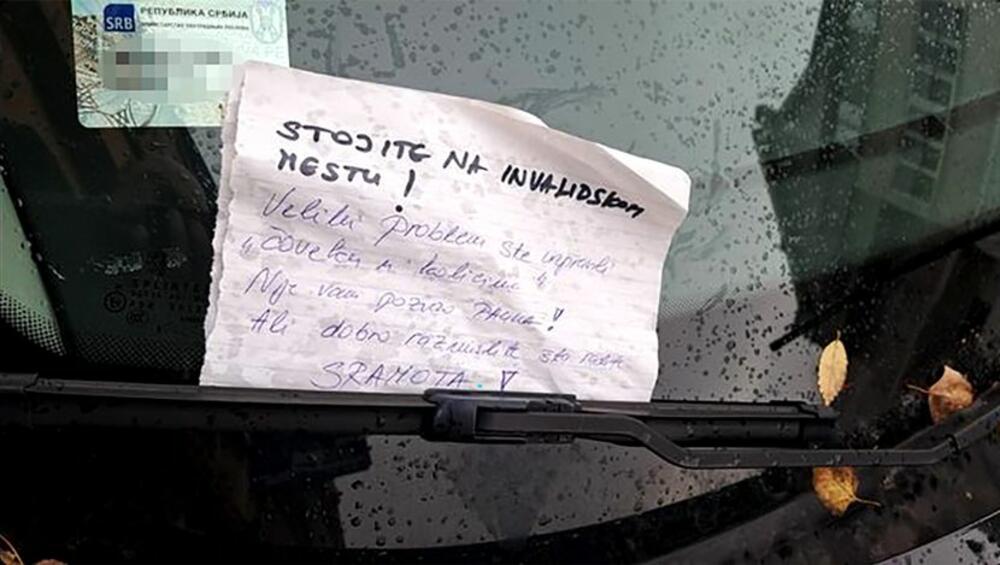 SRB
РЕПУБЛИКА СРБИЈА
STOJITE NA INVALIDSKOM
MESTU!
Veliki problem ste napravili
"čoveku u kolicima"
Nije vam pozvao PAUKA!
Ali dobro razmislite šta radite
SRAMOTA!